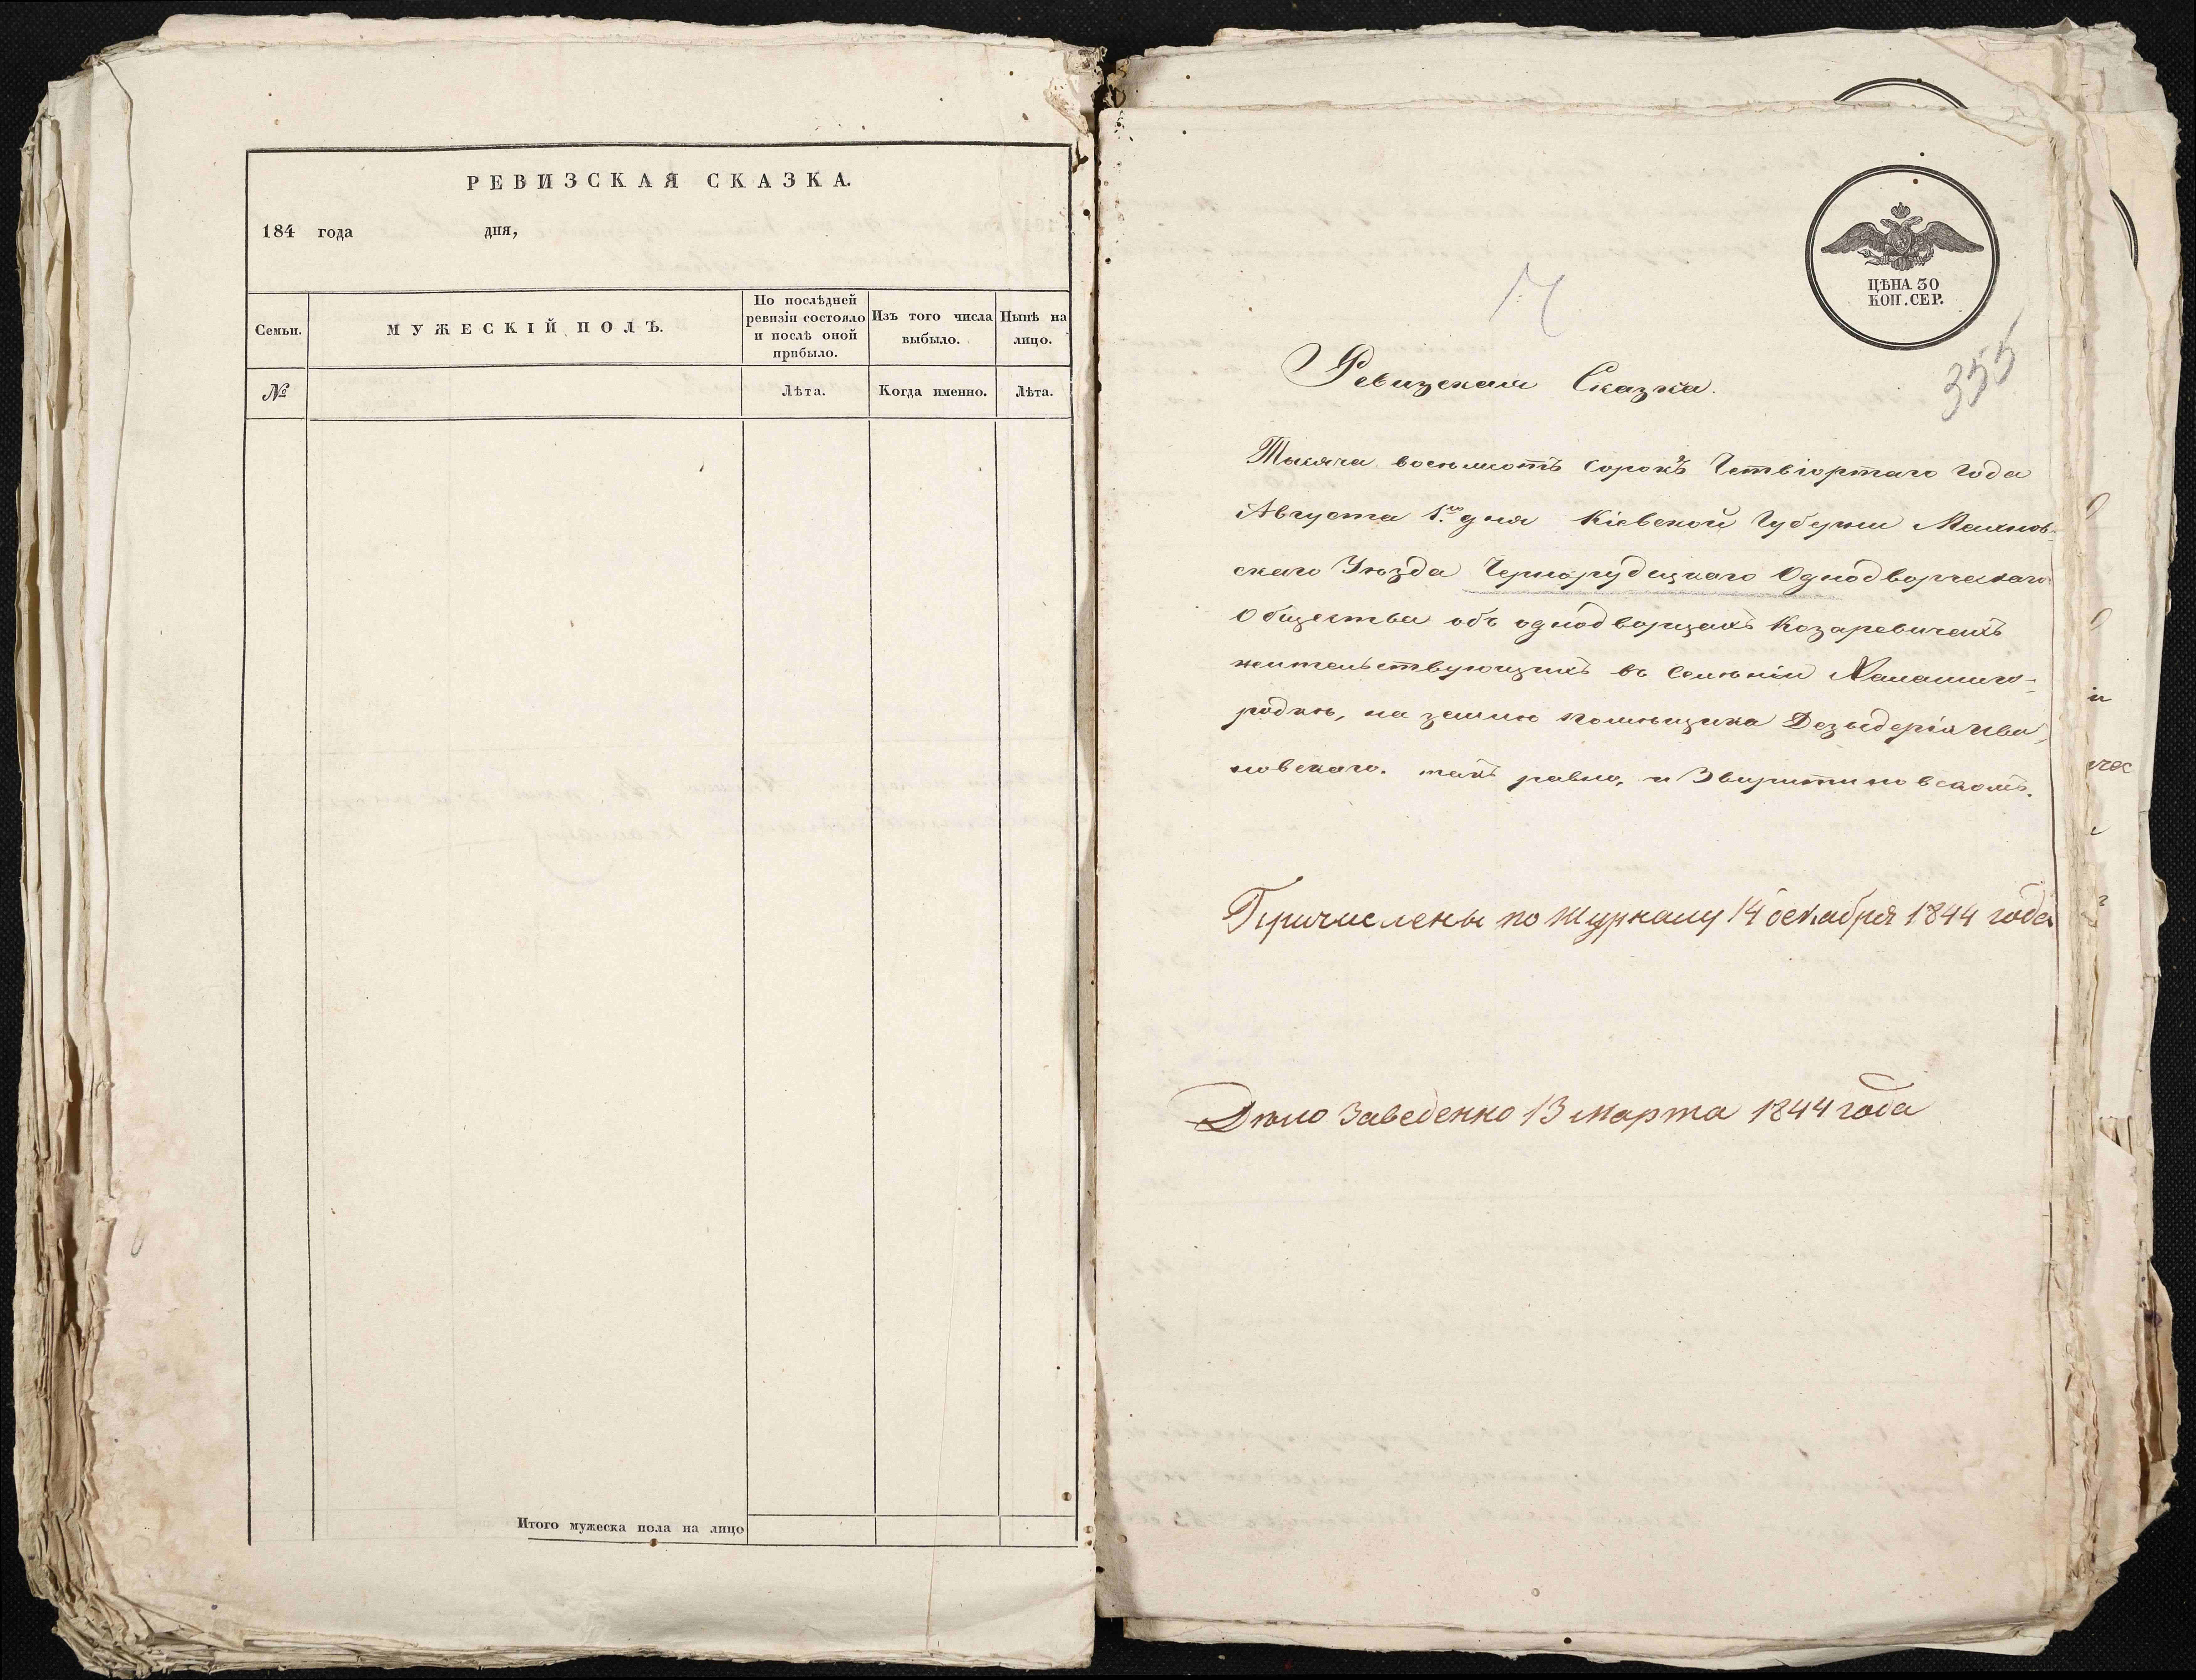 РЕВИЗСКАЯ СКАЗКА.
184 года дня,
Семьи.
МУЖЕСКІЙ ПОЛЪ.
По послѣдней
ревизіи состояло
и послѣ оной
прибыло.
Изъ того числа
выбыло.
Нынѣ на
лицо.
№
Лѣта.
Когда именно.
Лѣта.
Итого мужеска пола на лицо
ЦѢНА 30
КОП. СЕР.
355
Ревизская Сказка.
Тысяча восемьсотъ сорокъ Четвіортаго Года
Августа 1го дня Кіевской Губерніи Махнов-
скаго Уѣзда Чернорудецкаго Однодворческаго
Общества объ однодворцахъ Козаревичахъ
жительствующихъ въ Селѣніи
родкѣ, на землѣ помѣщика Дезыдерія Ива
новскаго. такъ равно, и
Причислены по Журналу 14 декабря 1844 года
Дѣло Заведенно 13 Марта 1844 года